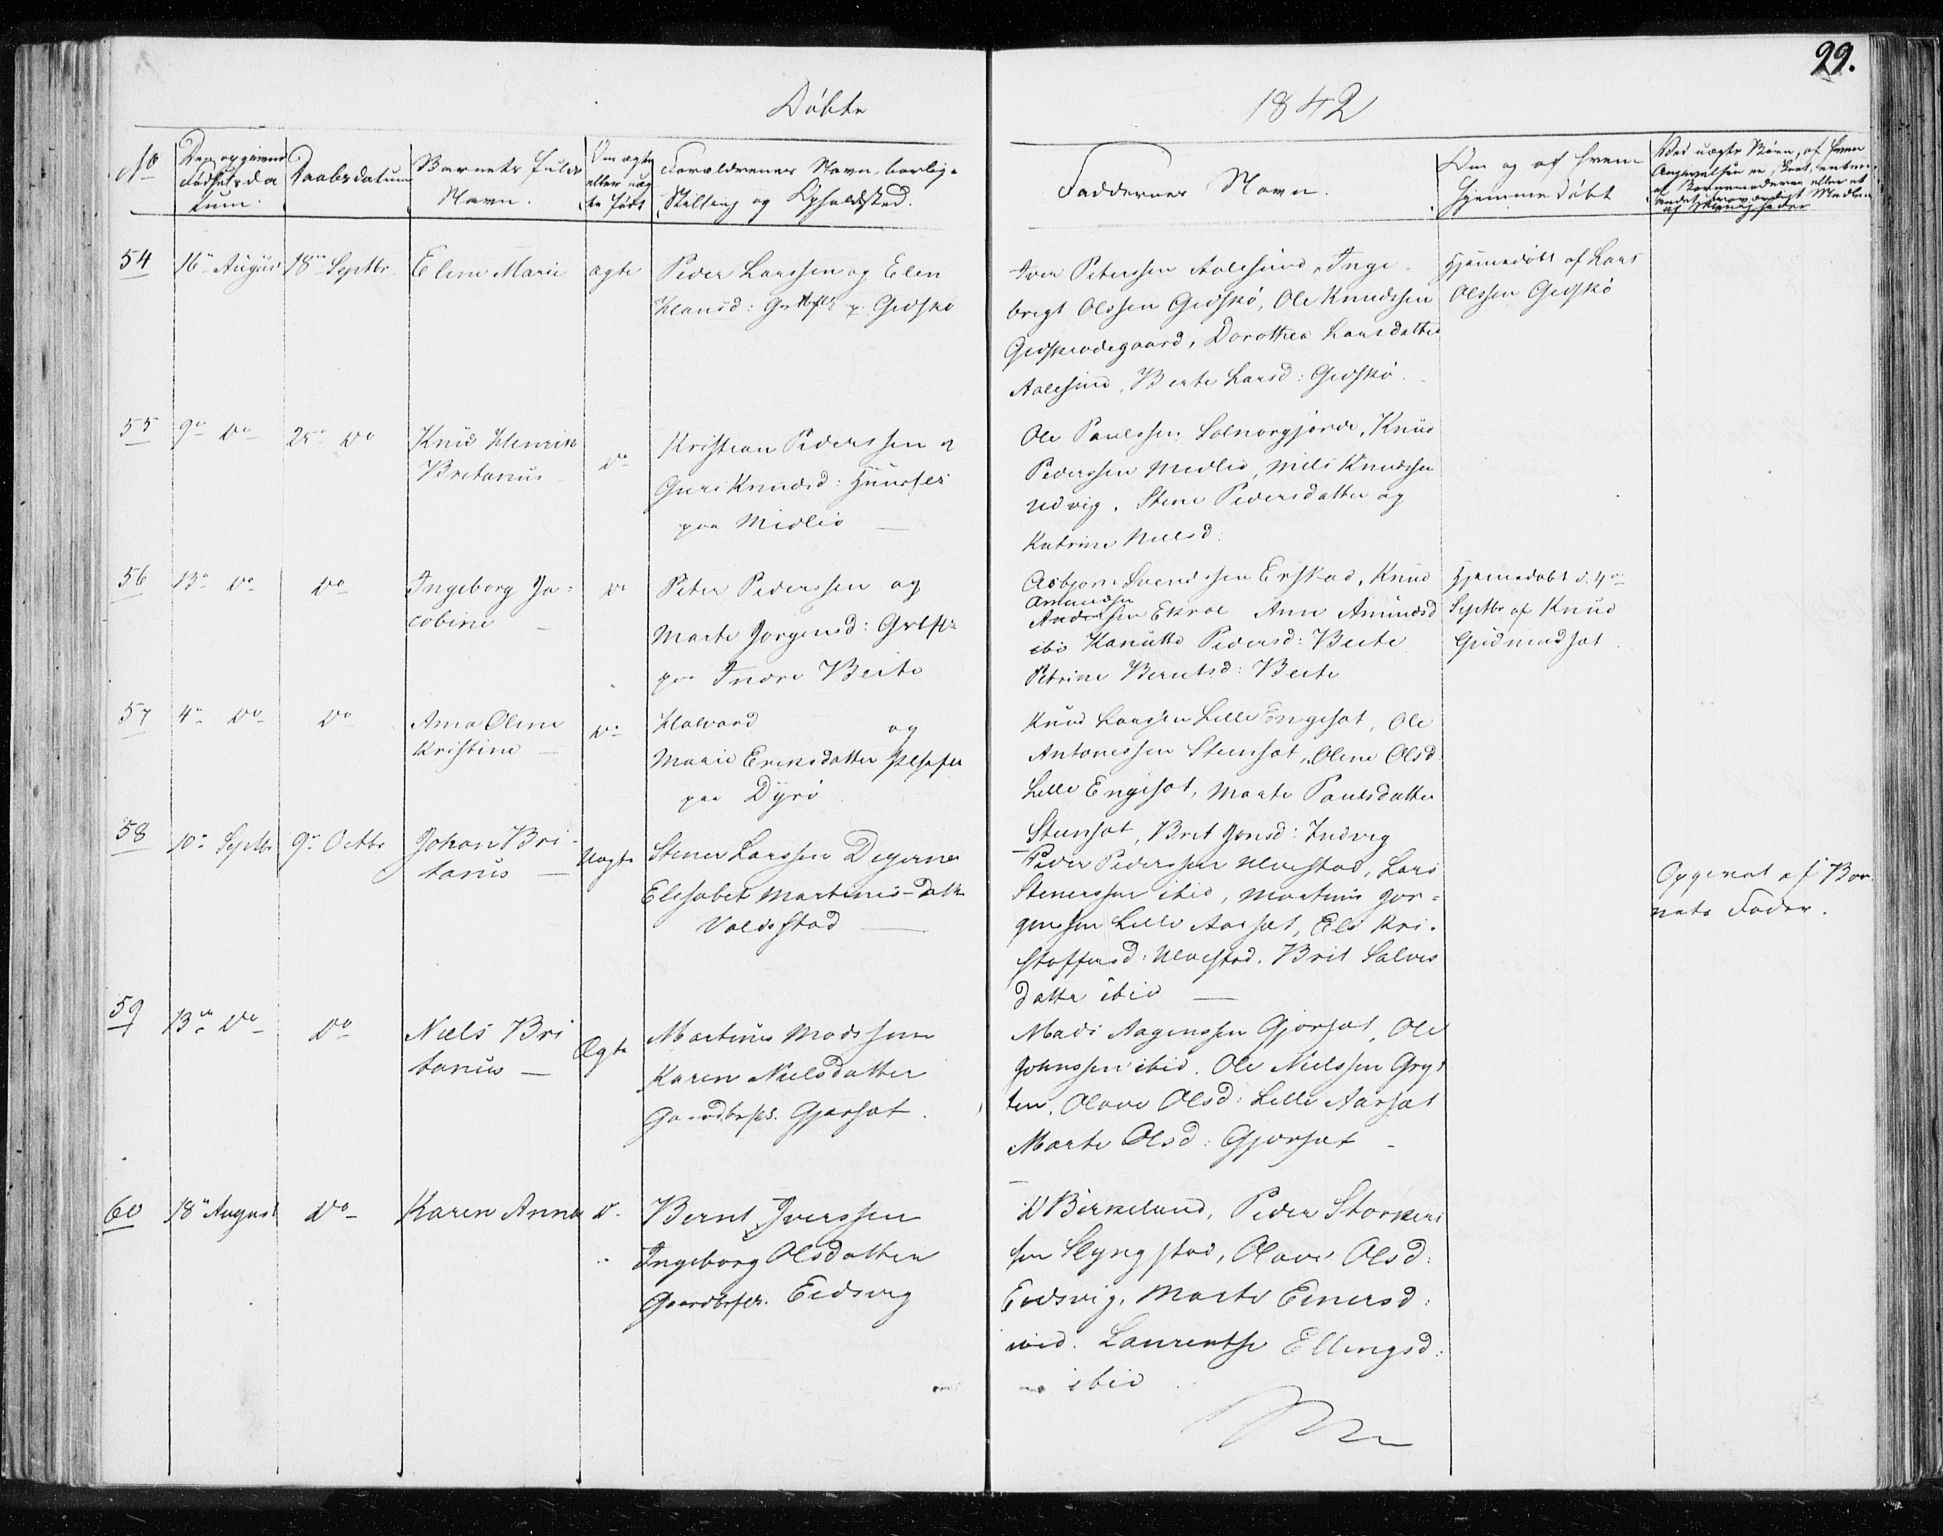 99.
Døbte
1842
No
Den opgivne
Fødselsda
tum.
Daabsdatum
Barnets fulde
Navn.
Om ægte
eller uæg
te født
Forældrenes Navn, borlig.
Stilling og Opholdsted.
Faddernes Navn.
Om og af hvem
hjemmedøbt
Ved uægte Børn, af hvem
Angivelsen er skeet, enten
af Barnemoderen eller et
andet troværdigt Medlem
af Menigheden
54
16 August
18 Septbr
Elene Marie
ægte
Peder Larssen og Elen
Hansd: Grdbfk p. Gidskø
Iver Peterssen Aalesund, Inge
brigt Olssen Gidskø, Ole Knudssen
Gidskeødegaard, Dorothea Larsdatter
Aalesund, Berte Larsd: Gidskø.
Hjemmedøbt af Lars
Olssen Gidskø
55
9 do
25 do
Knud Henrik
Britanus
do
Kristian Pederssen og
Guri Knudsd: Huusfk
paa Midlid
Ole Paulssen Solnørgjerde, Knud
Pederssen Medlid, Nils Knudssen
Udvig, Stene Pedersdatter og
Katrine Nilsd:
56
13 do
do
Ingeborg Ja-
cobine
do
Peter Pederssen og
Marte Jørgensd: Grdfk
paa Indre Beite
Asbjørn Svendssen Erstad, Knud
Amundsen
Anderssen Ekroe Ane Amundsd
ibid Hanutte Pedersd: Beite
Petrine Berntsd: Beite
Hjemmedøbt d. 4
Septbr af Knud
Gudmundsæt.
57
4 do
do
Ana Oline
Kristine
do
Halvard og
Marie Eriksdatter
paa Dyrø
Knud Larssen Lille Engesæt, Ole
Antonessen Steensæt, Oline Olsd
Lille Engesæt, Marte Paulsdatter
Steensæt, Brit Jonsd: Indvig
58
10 Septbr
9 Octbr
Johan Bri-
tanus
Uægte
Stener Larssen Digernes
Elisabet Martinusdatt
Valdsstad
Peder Pederssen Ulvestad, Lars
Stenerssen ibid, Martinus Jør-
genssen Lille Aarsæt, Els Kri-
stoffersd: Ulvestad, Brit Salves
datter ibid
Opgivet af Bar
nets Fader.
59
13 do
do
Niels Bri
tanus
Ægte
Martinus Madssen
Karen Nielsdatter
Gaardbrfk. Gjersæt.
Mads Aagenssen Gjersæt, Ole
Johnssen ibid. Ole Nielssen Gry
ten, Olave Olsd: Lille Aarsæt
Marte Olsd: Gjersæt
60
18 August
do
Karen Anna
do
Bernt Iverssen
Ingeborg Olsdatter
Gaardbrfk. Eidsvig
Birkeland, Peder Storkers
sen Slyngstad, Olave Olsd:
Eidsvig, Marte Einersd:
ibid. Laurentse Ellingsd:
ibid